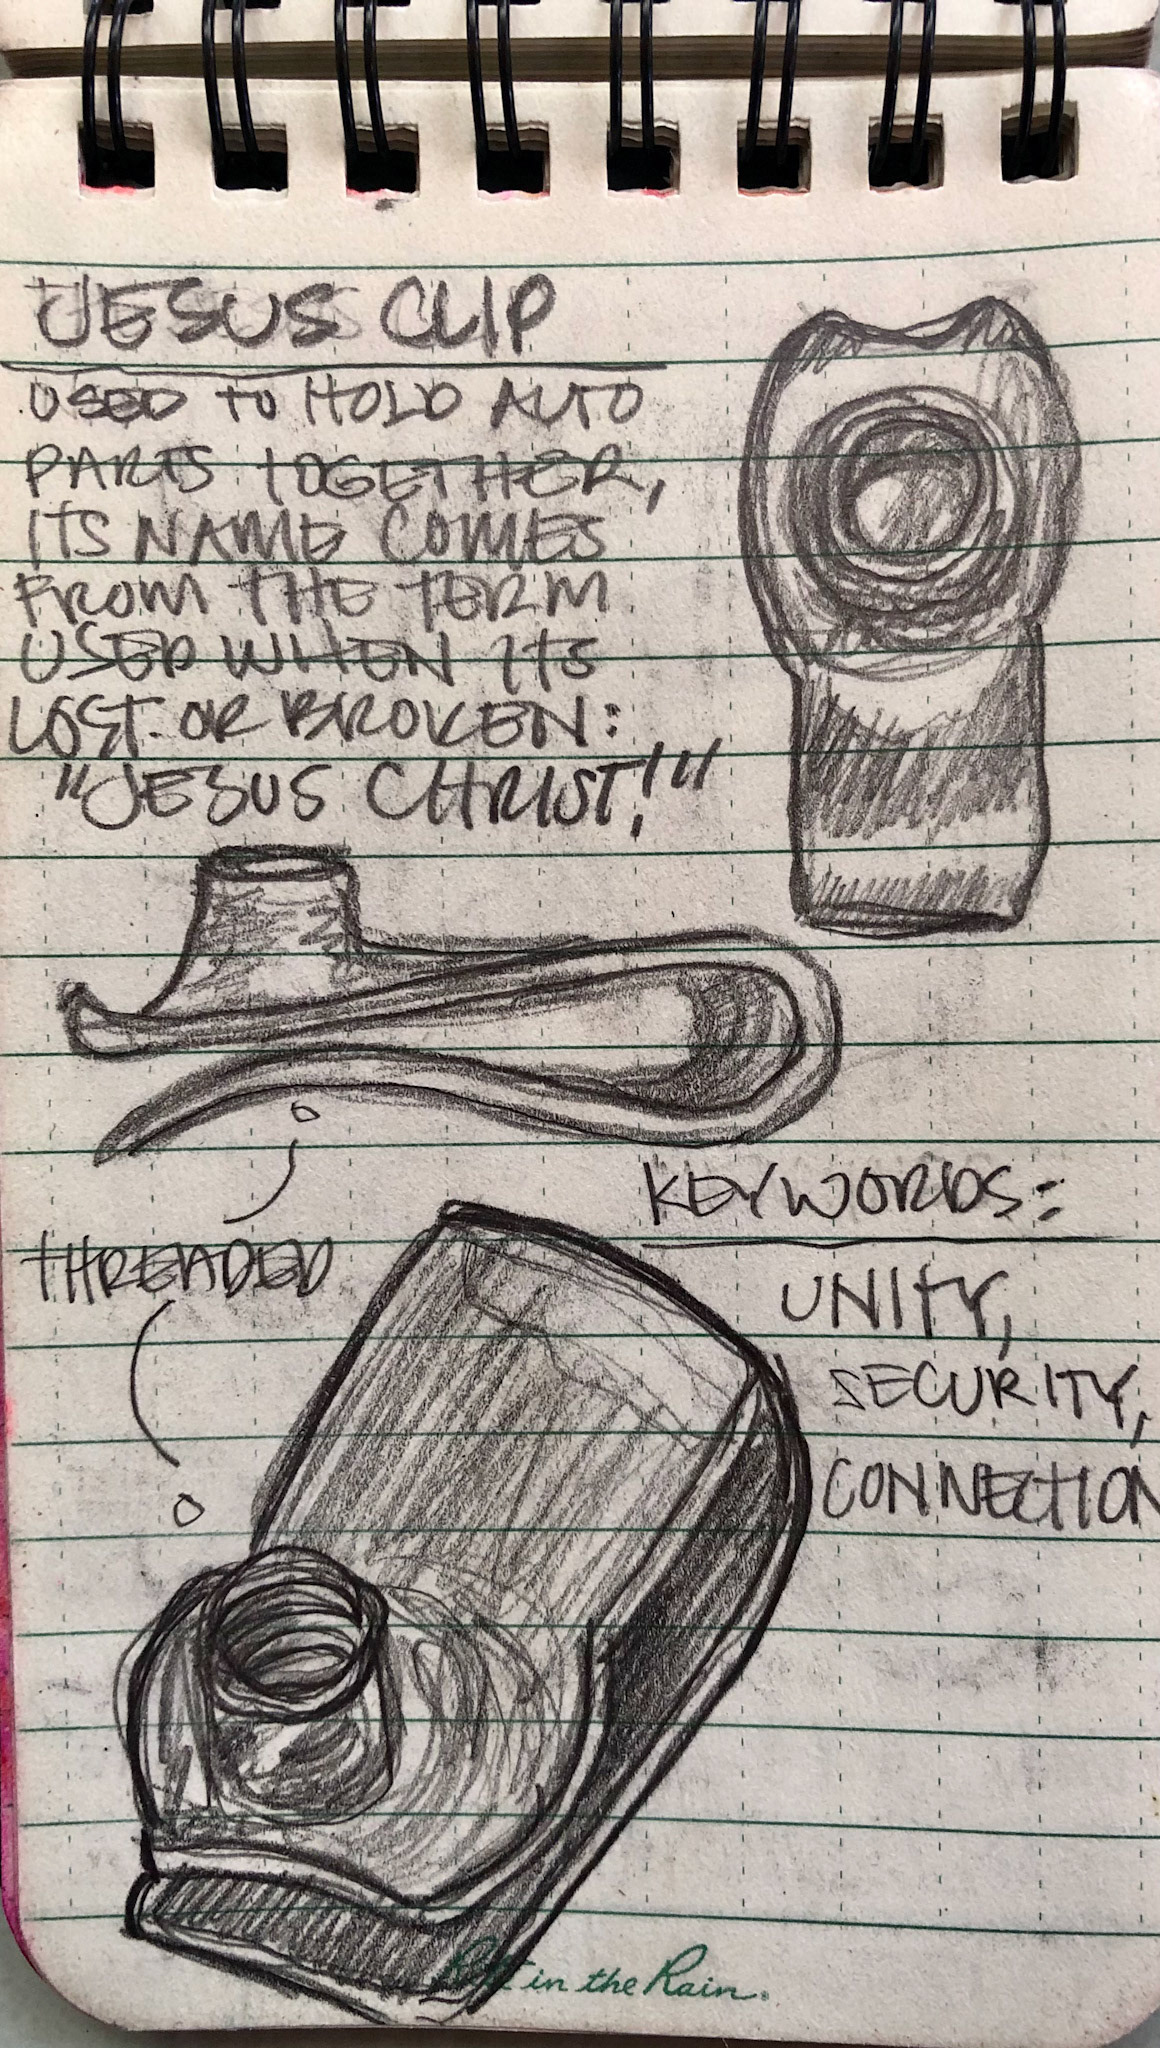 JESUS CLIP
USED TO HOLD AUTO
PARTS TOGETHER,
ITS NAME COMES
FROM THE TERM
USED WHEN ITS
LOST OR BROKEN:
"JESUS CHRIST!"
KEYWORDS:
THREADED
UNITY,
SECURITY,
CONNECTION
in the Rain.